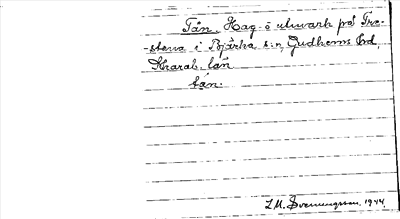 Tån. Hag- o utmark på Tra-
stena i Bjärka s:n, Gudhems hd
Skarab. län
tån
L.M. Svenungsson. 1944.